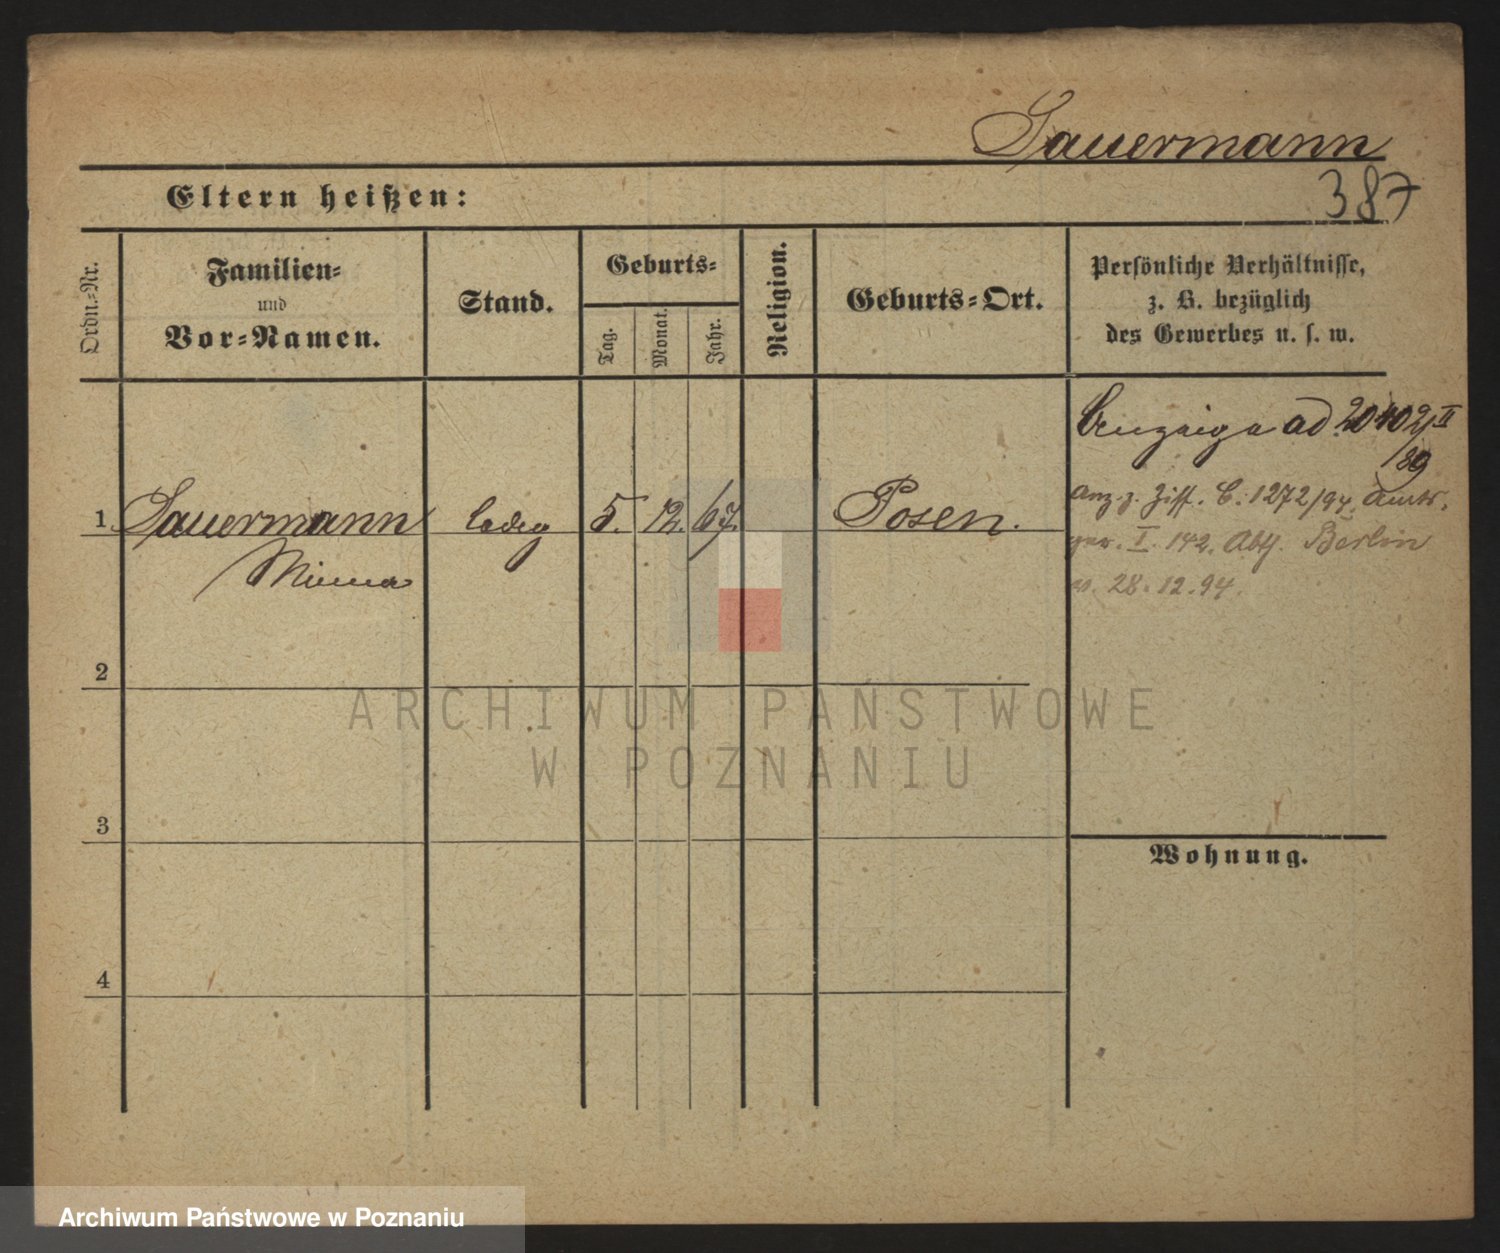 Sauermann
Eltern heißen:
387
Ordn.-Nr.
Familien-
und
Vor-Namen.
Stand.
Geburts-
Tag.
Monat.
Jahr.
Religion.
Geburts-Ort.
Persönliche Verhältnisse,
z. B. bezüglich
des Gewerbes u. s. w.
Anzeige ad 20402/II
/89
1. Sauermann ledig 5. 12. 67. Posen.
Minna
Anz. z. Ziff. C. 1272/94. Amts-
ger. I. 142. Abth. Berlin
v. 28.12.94.
2
3
4
Wohnung.
ARCHIWUM PAŃSTWOWE
W POZNANIU
Archiwum Państwowe w Poznaniu